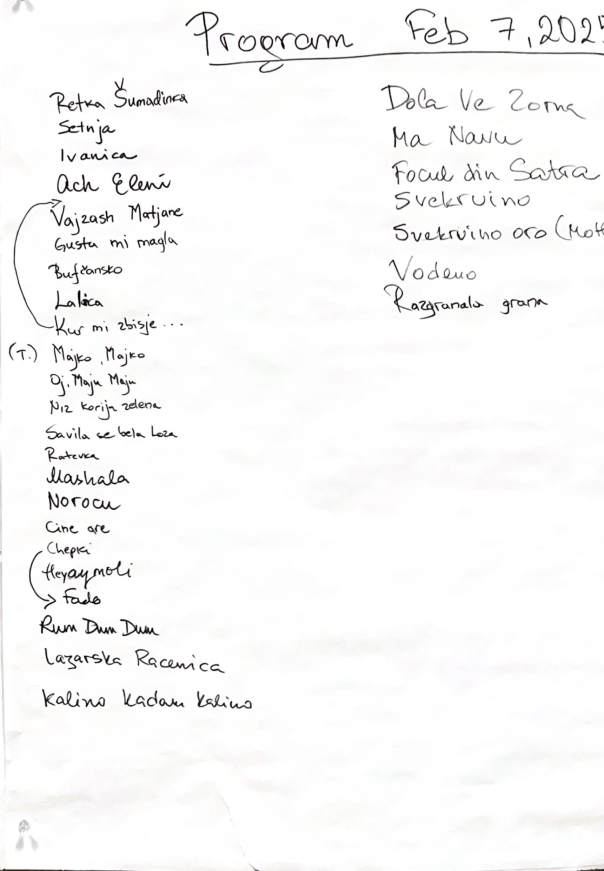 Program Feb 7, 2025
Retka Šumadinka
Setnja
Ivanica
Ach Eleni
Vajzash Matjane
Gusta mi magla
Bufčansko
Lalica
Kur mi zbisje ...
(T.) Majko, Majko
Oj, Maju Maju
Niz korija zelena
Savila se bela Loza
Ratevka
Mashala
Norocu
Cine are
Chepki
Heyaymoli
Fado
Rum Dum Dum
Lazarska Racenica
Kalino Kadam Kalino
Dola Ve Zorna
Ma Navu
Focul din Satra
Svekrvino
Svekrvino oro (Mott
Vodeno
Razgranala grana